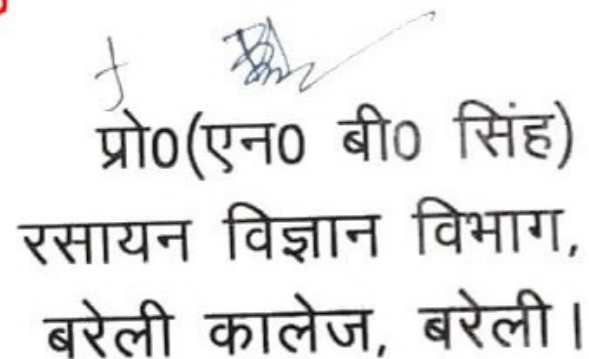 प्रो0(एन0 बी0 सिंह)
रसायन विज्ञान विभाग,
बरेली कालेज, बरेली।